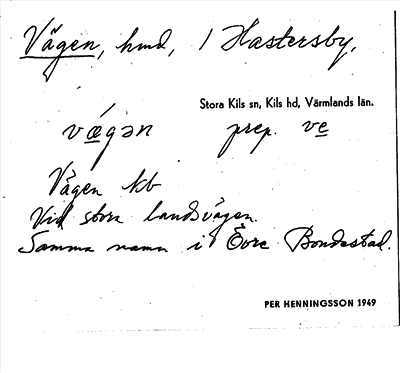 Vägen, hmd, 1 Hastersby.
Stora Kils sn, Kils hd, Värmlands län.
vǽgən prep. ve
Vägen kb
Vid stora landsvägen.
Samma namn i Övre Bondestad.
PER HENNINGSSON 1949